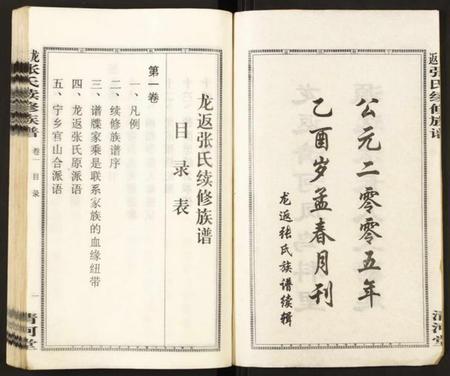 返张氏续修族谱
公元二零零五年
乙酉岁孟春月刊
龙返张氏族谱续辑
清河堂
龙返张氏续修族谱
目录表
第一卷
一、凡例
二、续修族谱序
三、谱牒家乘是联系家族的血缘纽带
四、龙返张氏原派语
五、宁乡官山合派语
龙返张氏续修族谱
卷一
目录
一
清河堂